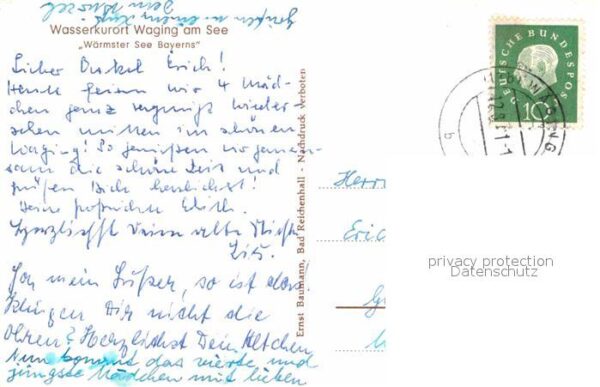 Grüßen u. einem Kuß
Dein
Wasserkurort Waging am See
„Wärmster See Bayerns"
Lieber Onkel Erich!
Heute feiern wir 4 Mäd-
chen ganz vergnügt Wieder-
sehen mitten im schönen
Waging! So genießen wir gemein-
sam die schöne Zeit und
grüßen Dich herzlichst!
Deine Edith.
Herzlichst Deine alte
Ja, mein Süßer, so ist das!
Klingen Dir nicht die
Ohren? Herzlichst Dein Altchen
Nun kommt das vierte und
jüngste Mädchen mit lieben
Ernst Baumann, Bad Reichenhall - Nachdruck verboten
DEUTSCHE BUNDESPOST
10
WAGING
b
Herr
Eric
privacy protection
Datenschutz